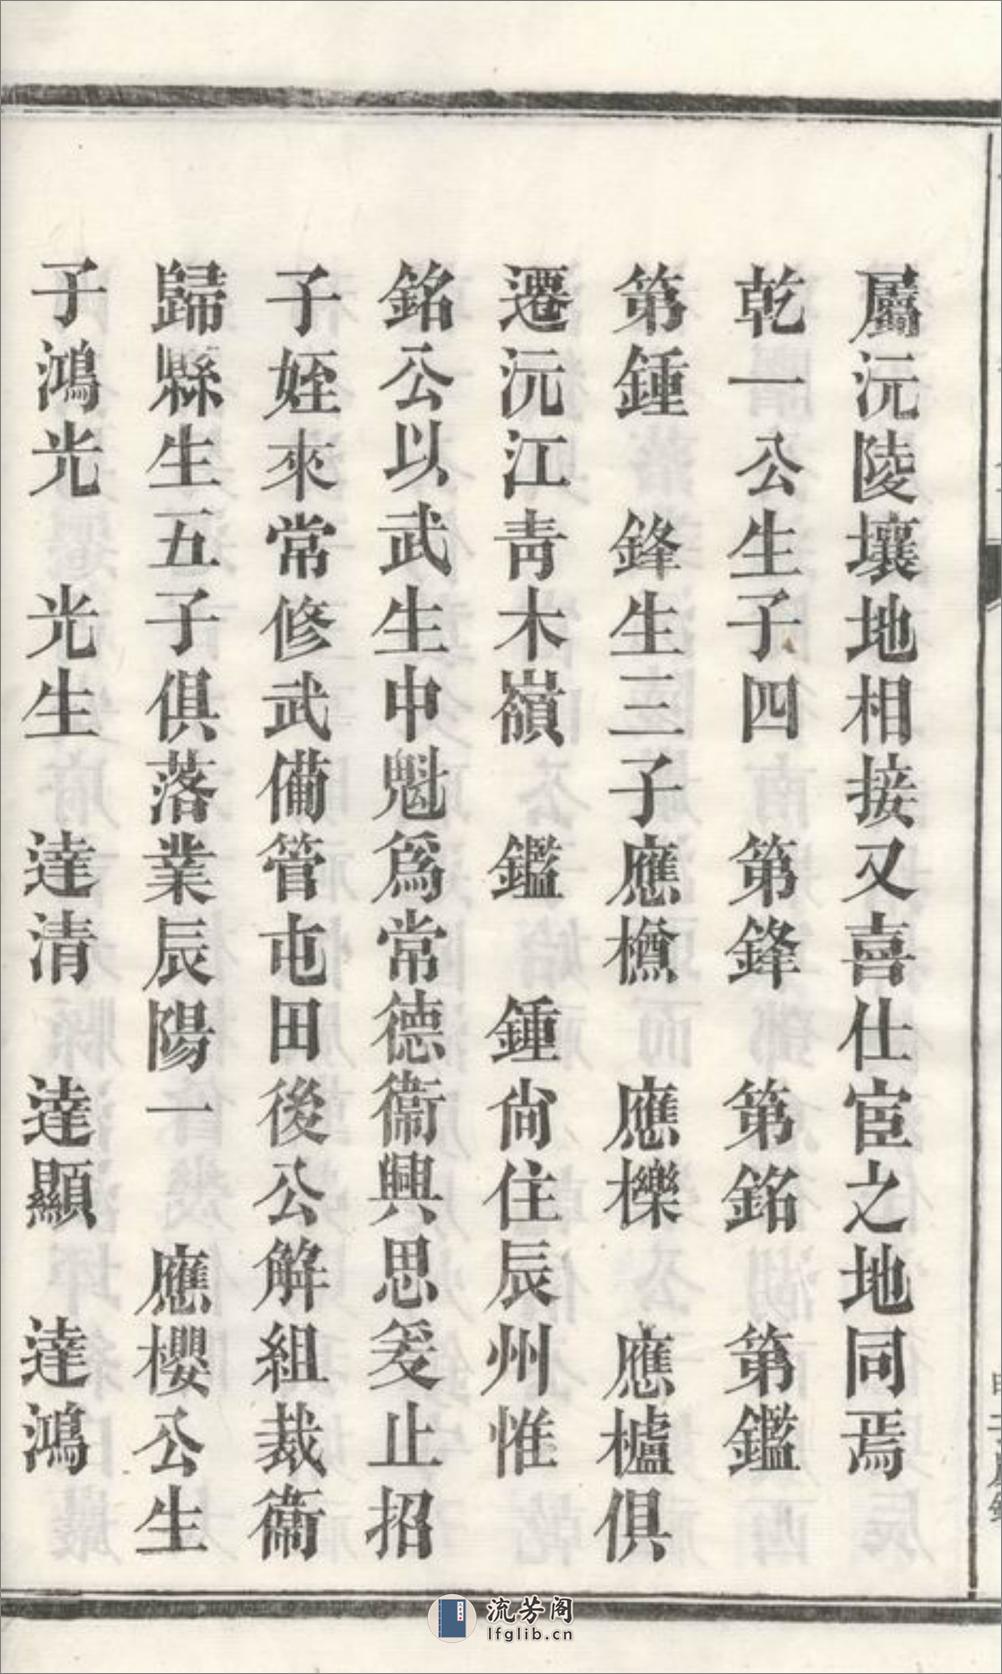 屬沅陵壤地相接又喜仕宦之地同焉
乾一公生子四 第鋒 第銘 第鑑
第鍾 鋒生三子應櫵 應櫟 應櫨俱
遷沅江青木嶺 鑑 鍾尙住辰州惟
銘公以武生中魁爲常德衞興思爰止招
子姪來常修武備管屯田後公解組裁衞
歸縣生五子俱落業辰陽一 應櫻公生
子鴻光 光生 達清 達顯 達鴻
流芳阁
lfglib.cn